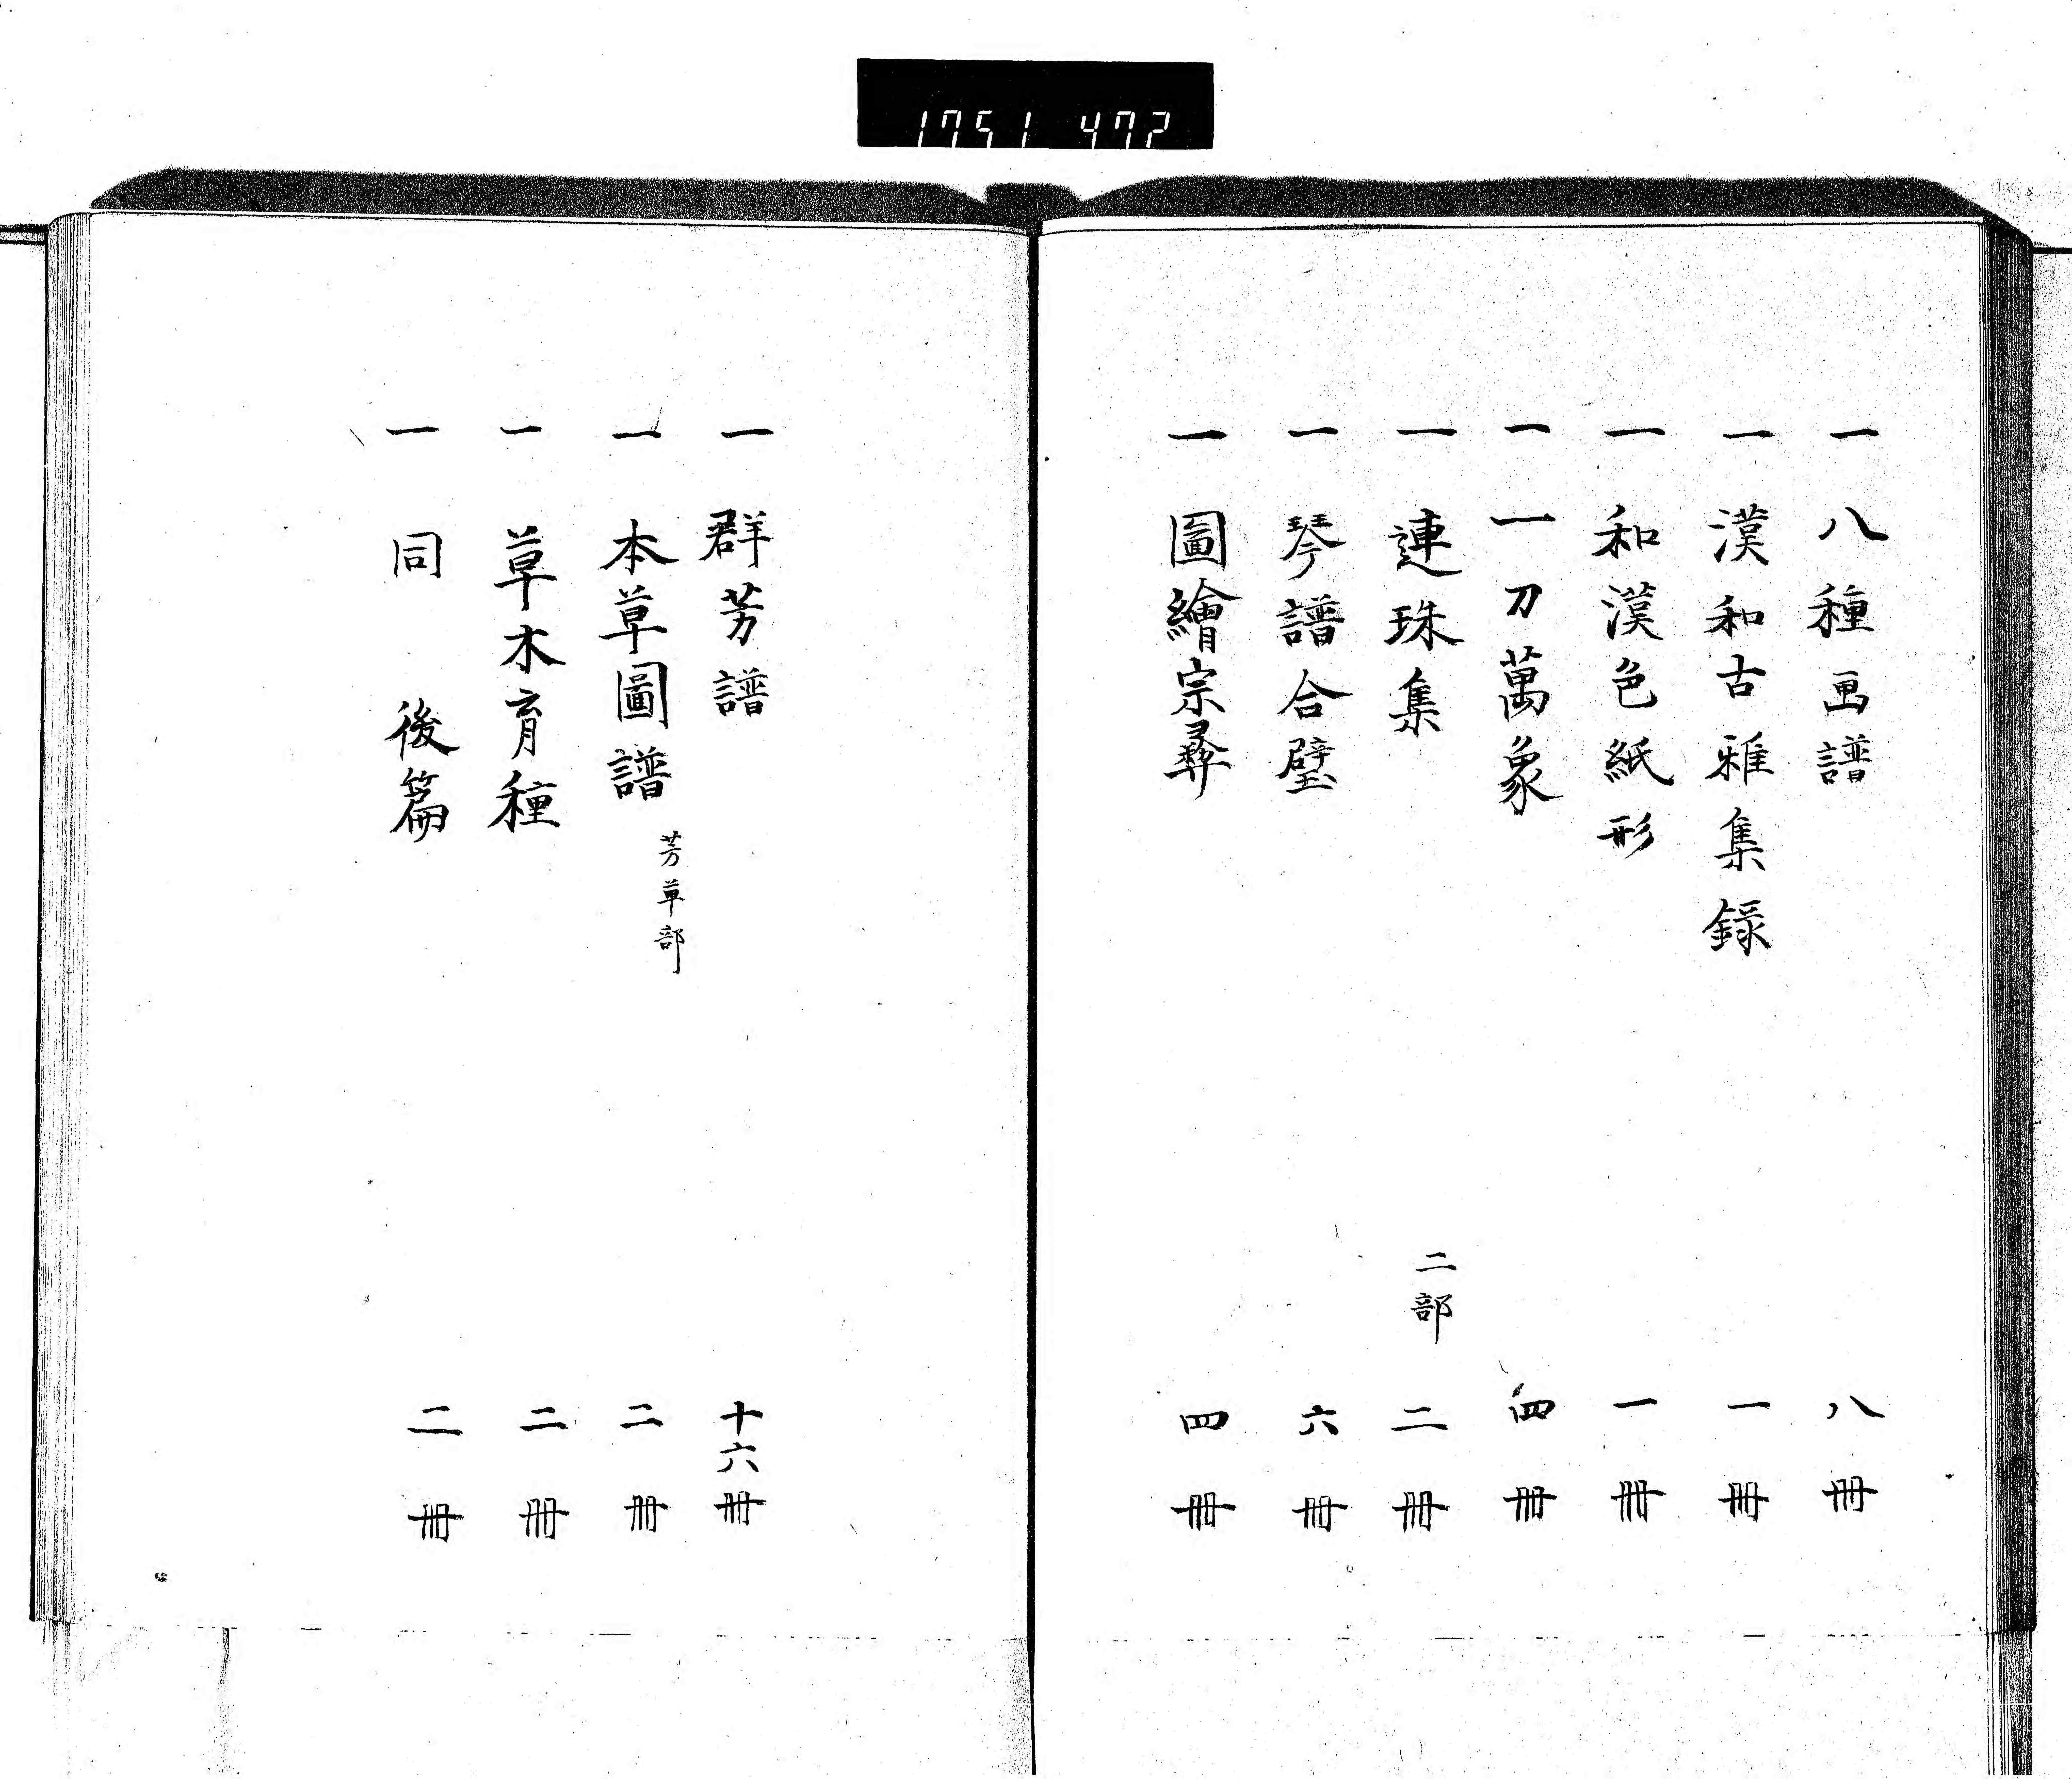 1751 472
一 八種画譜 八冊
一 漢和古雅集録 一冊
一 和漢色紙形 一冊
一 一刀萬象 四冊
一 連珠集 二部 二冊
一 琴譜合璧 六冊
一 圖繪宗彛 四冊
一 群芳譜 十六冊
一 本草圖譜 芳草部 二冊
一 草木育種 二冊
一 同 後篇 二冊